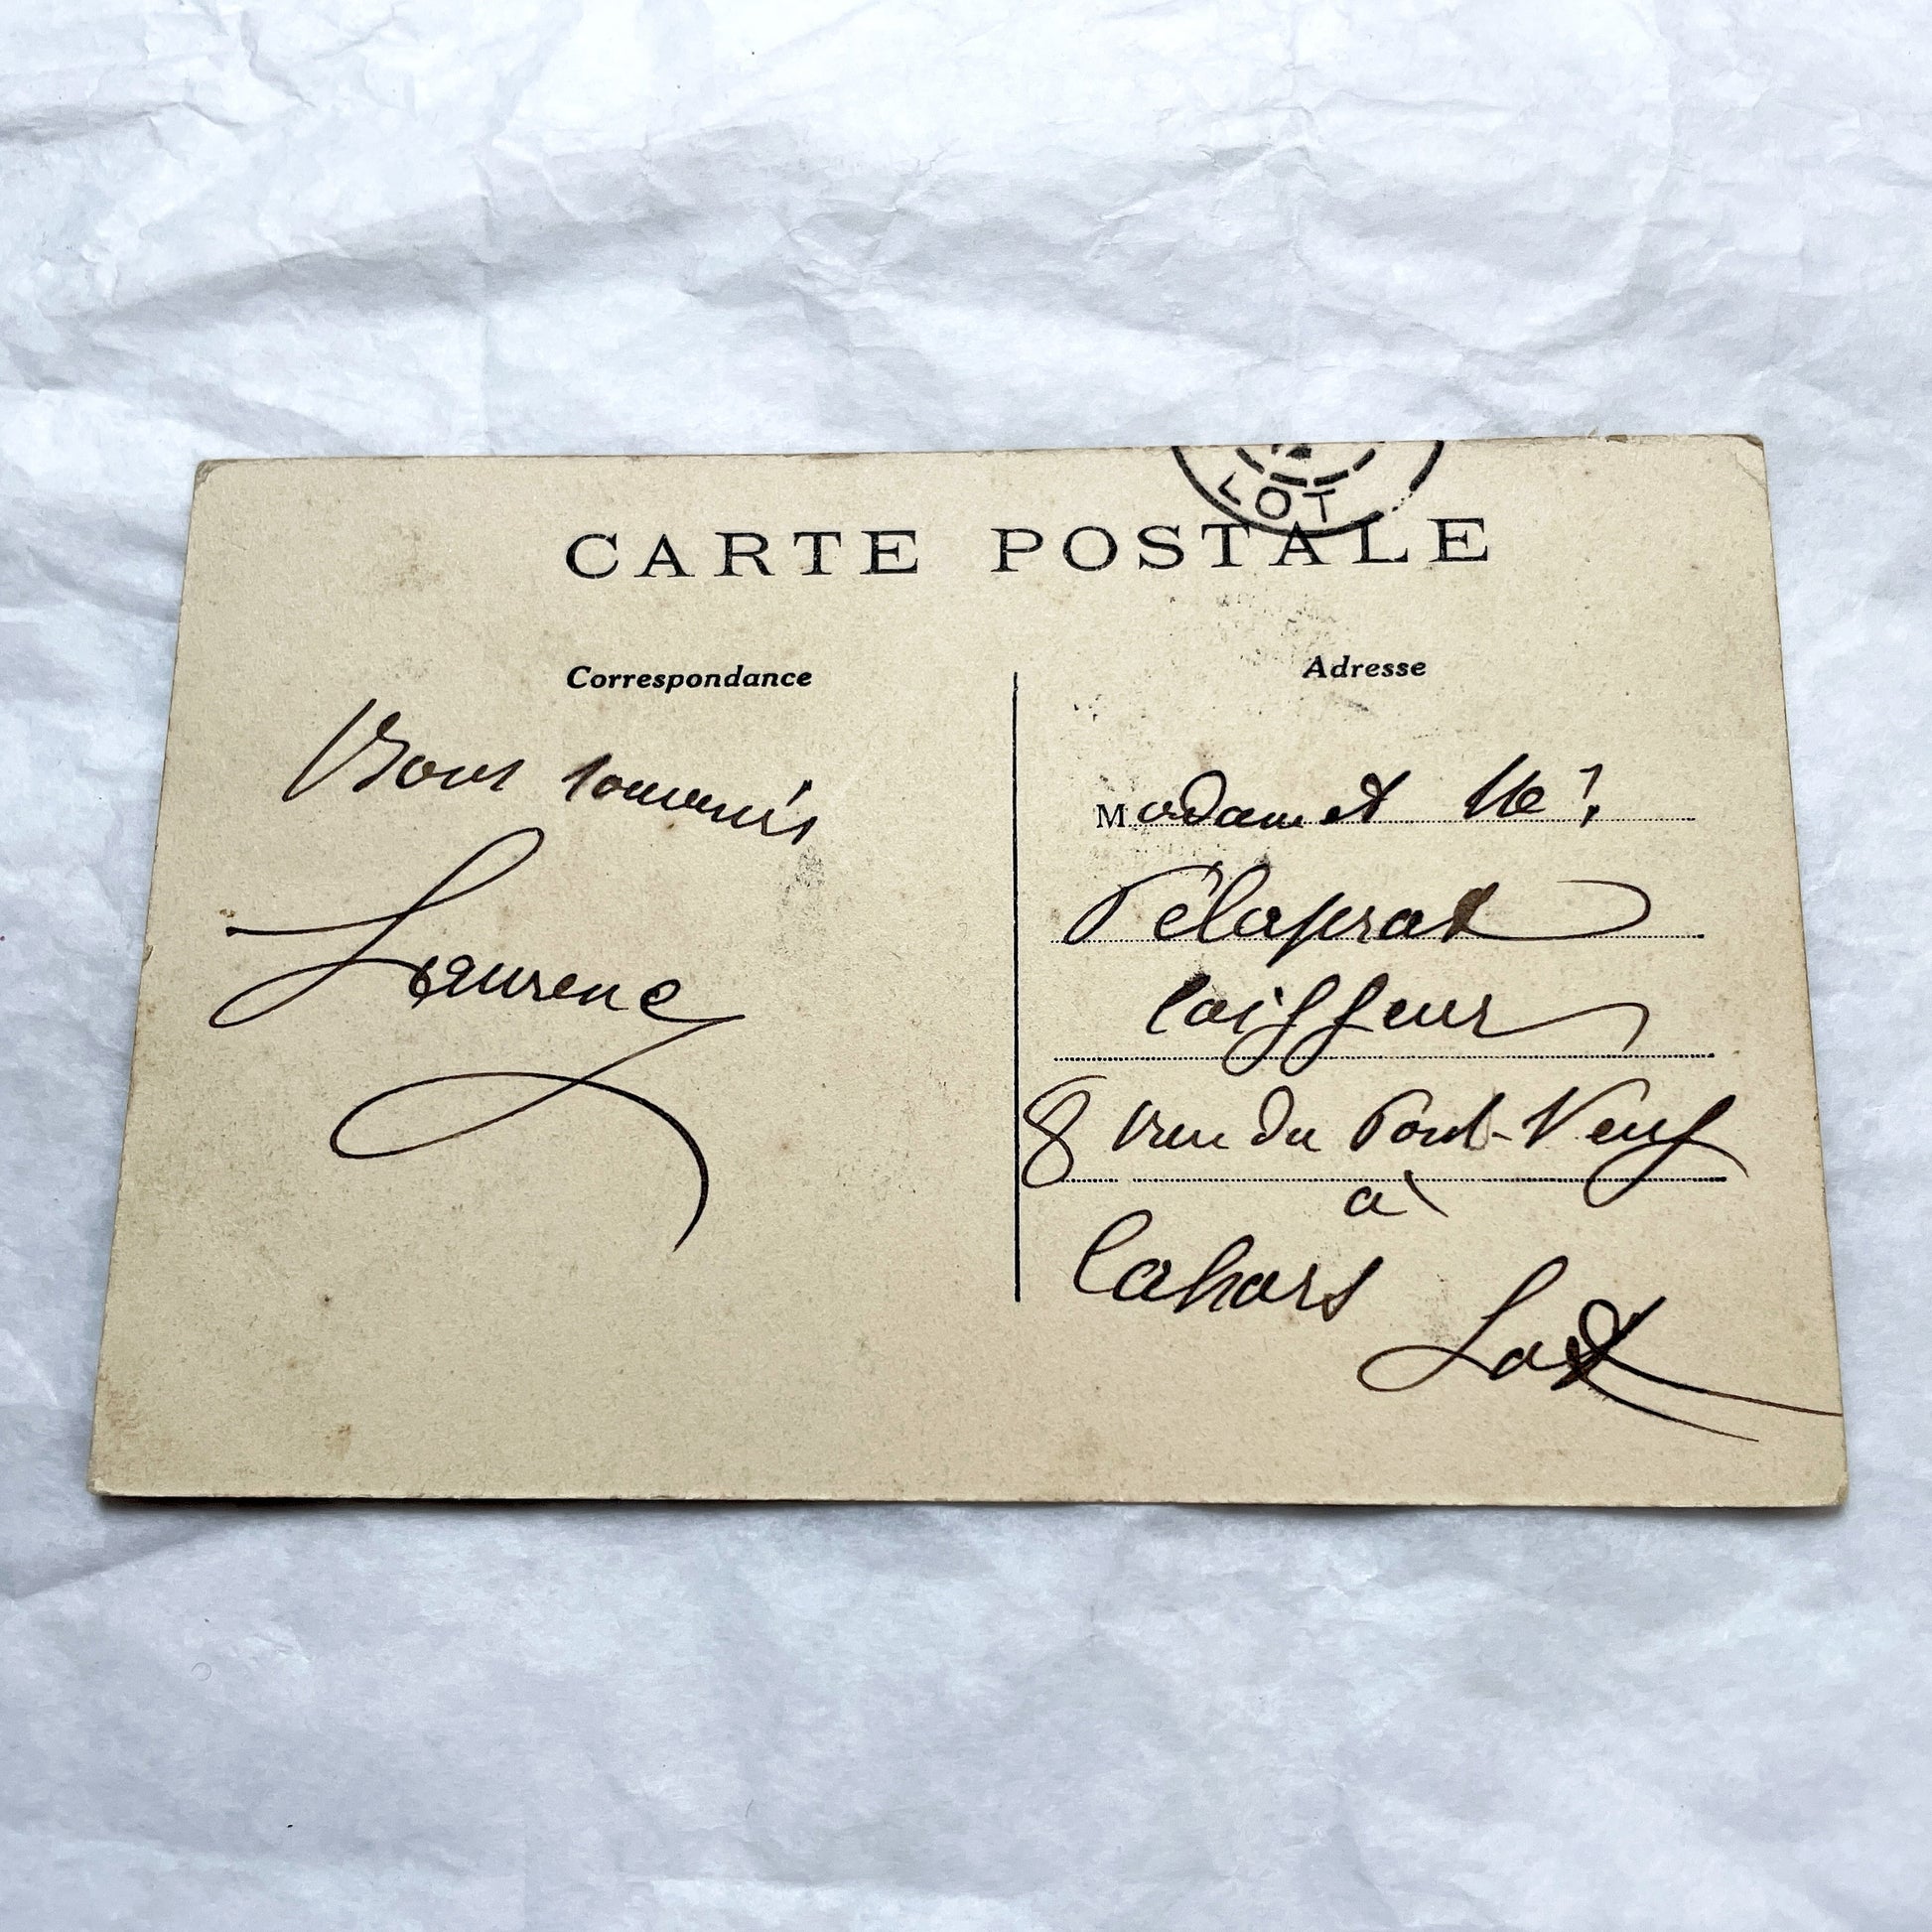 LOT
CARTE POSTALE
Correspondance
Bons souvenirs
Laurent
Adresse
Madame et Mr
Pélaprat
Coiffeur
8 rue du Pont-Neuf
à
Cahors
Lot